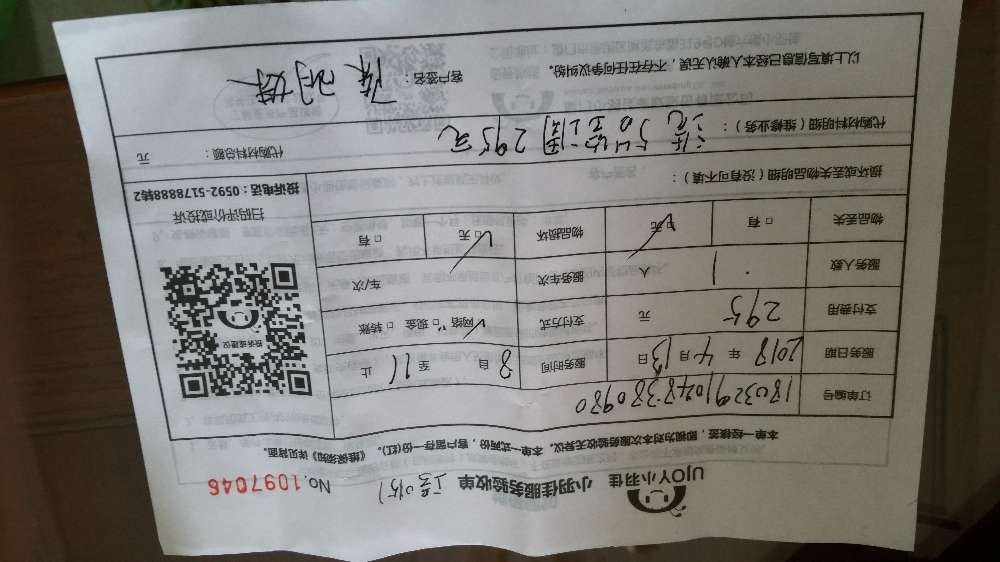 UJOY小羽佳 小羽佳服务验收单 No.1097046
本单一经接签，即视为对本次服务验收无异议。本单一式两份，客户留存一份(红)。《维保须知》详见背面。
订单编号 180329104838380980
服务日期 2018 年 4 月 13 日 服务时间 8 自 至 11 止
支付费用 295 元 支付方式 ☑网络 □现金 □转账
服务人数 1 服务车次 车/次
物品丢失 □有 ☑无 物品损坏 ☑无 □有
扫码评价或投诉
投诉或建议
投诉电话：0592-5178888转2
损坏或丢失物品明细（没有可不填）：
代购材料明细（维修业务）： 295元
代购材料总额： 元
以上填写信息已经本人确认无误，不存在任何争议纠纷。 客户签名：